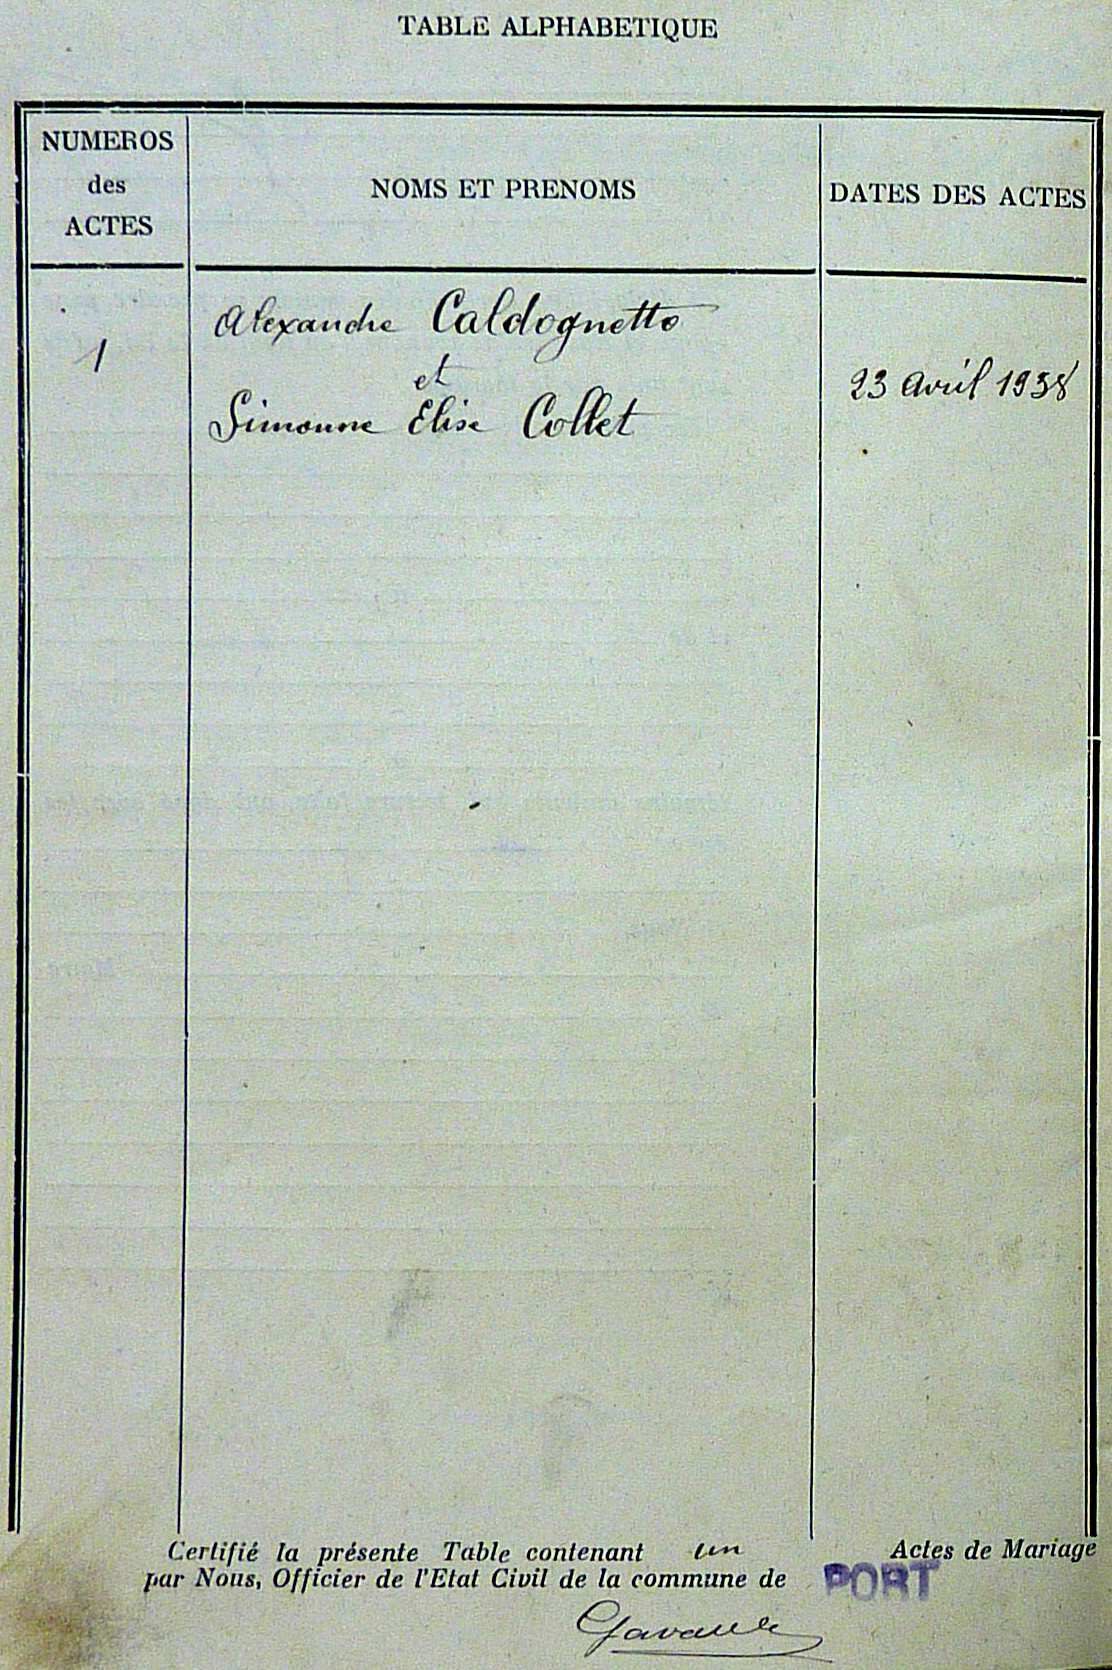 TABLE ALPHABETIQUE
NUMEROS
des
ACTES
NOMS ET PRENOMS
DATES DES ACTES
Alexandre Caldognetto
1
et
23 Avril 1938
Simonne Elise Collet
Certifié la présente Table contenant un Actes de Mariage
par Nous, Officier de l'Etat Civil de la commune de PORT